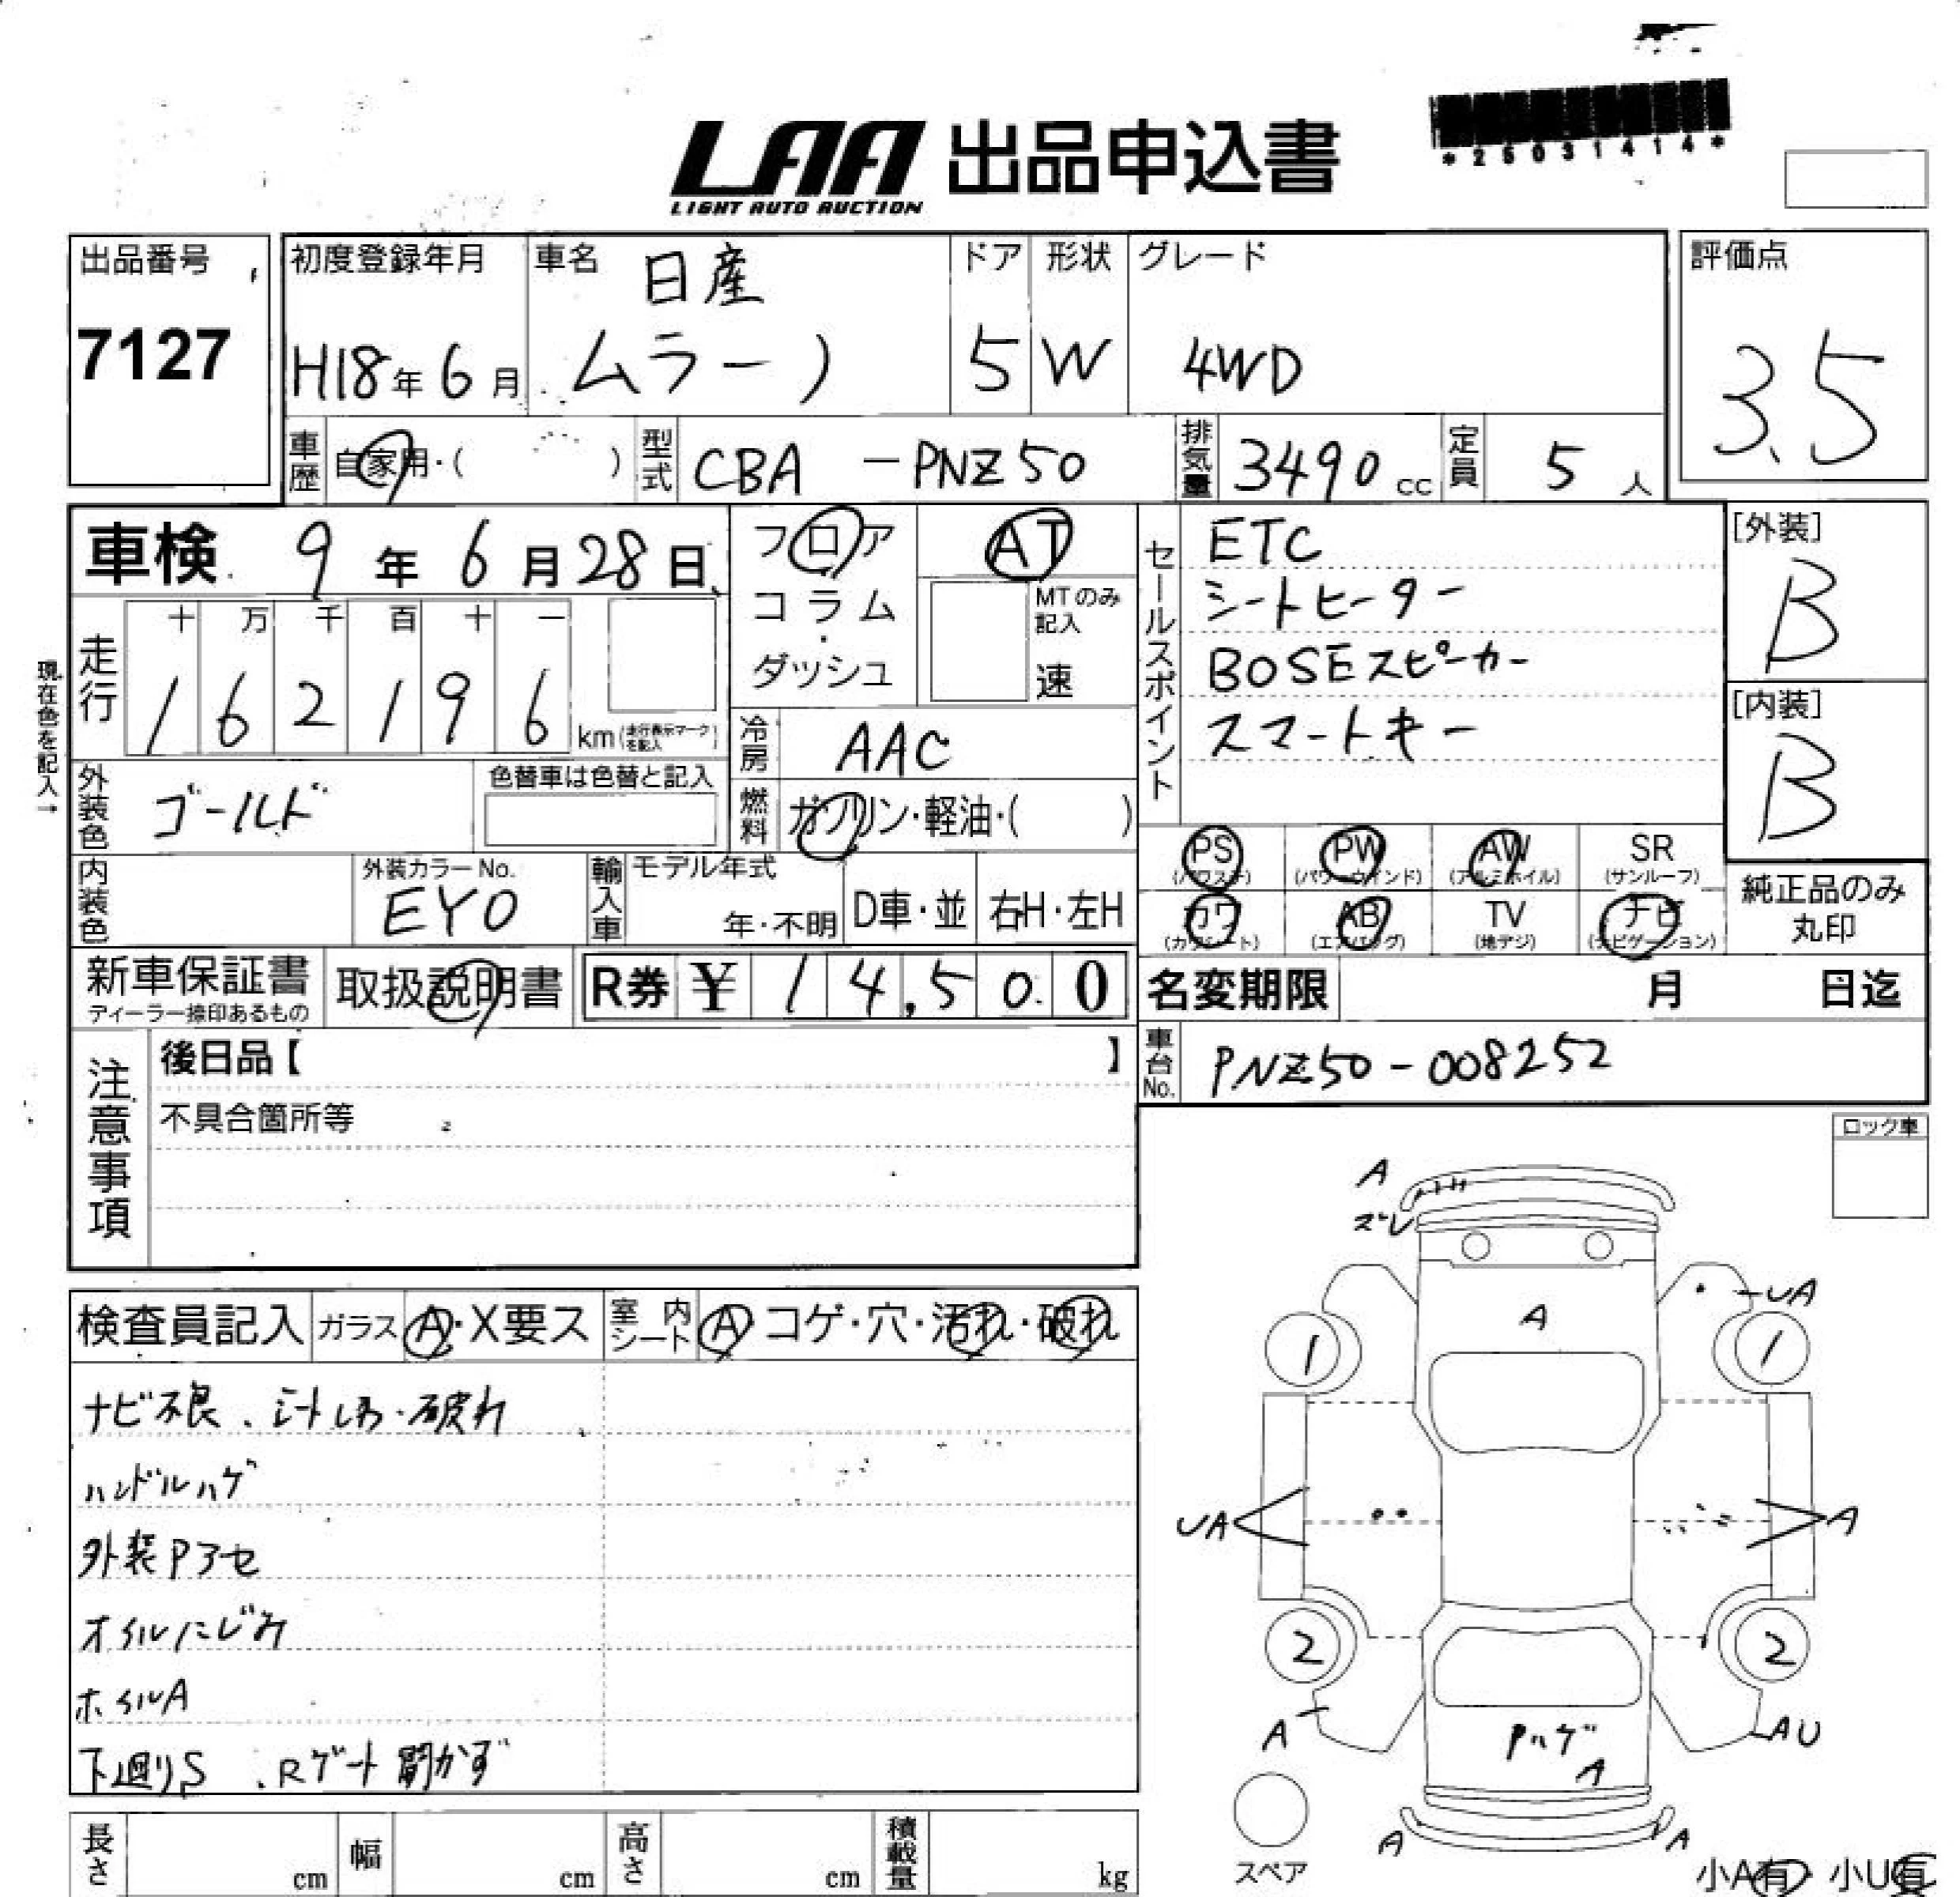 LAA 出品申込書
LIGHT AUTO AUCTION
*25031414*
出品番号
7127
初度登録年月
H18年6月
車名
日産
ムラーノ
ドア
5
形状
W
グレード
4WD
評価点
3.5
車歴 自家用・( )
型式 CBA-PNZ50
排気量 3490cc
定員 5人
車検 9年6月28日
フロア
コラム
・
ダッシュ
AT
MTのみ記入
速
セールスポイント
ETC
シートヒーター
BOSEスピーカー
スマートキー
[外装]
B
[内装]
B
現在色を記入→
走行
十 万 千 百 十 一
1 6 2 1 9 6 km(走行表示マークを記入)
冷房 AAC
外装色 ゴールド
色替車は色替と記入
燃料 ガソリン・軽油・( )
PS (パワステ)
PW (パワーウインド)
AW (アルミホイル)
SR (サンルーフ)
カワ (カワシート)
AB (エアバッグ)
TV (地デジ)
ナビ (ナビゲーション)
純正品のみ
丸印
内装色
外装カラーNo.
EY0
輸入車
モデル年式
年・不明
D車・並
右H・左H
新車保証書
ディーラー捺印あるもの
取扱説明書
R券 ¥ 14,500
名変期限 月 日迄
車台No. PNZ50-008252
注意事項
後日品【 】
不具合箇所等
ロック車
検査員記入
ガラス A・X要ス
室内シート A コゲ・穴・汚れ・破れ
ナビ不良、シートしみ・破れ
ハンドルハゲ
外装Pアセ
オイルにじみ
ホイルA
下廻りS、Rゲート開かず
A
ズレ
A
UA
1
1
UA
A
2
2
A
Pハゲ
A
AU
A
A
スペア
小A有 ・ 小U有
長さ cm
幅 cm
高さ cm
積載量 kg